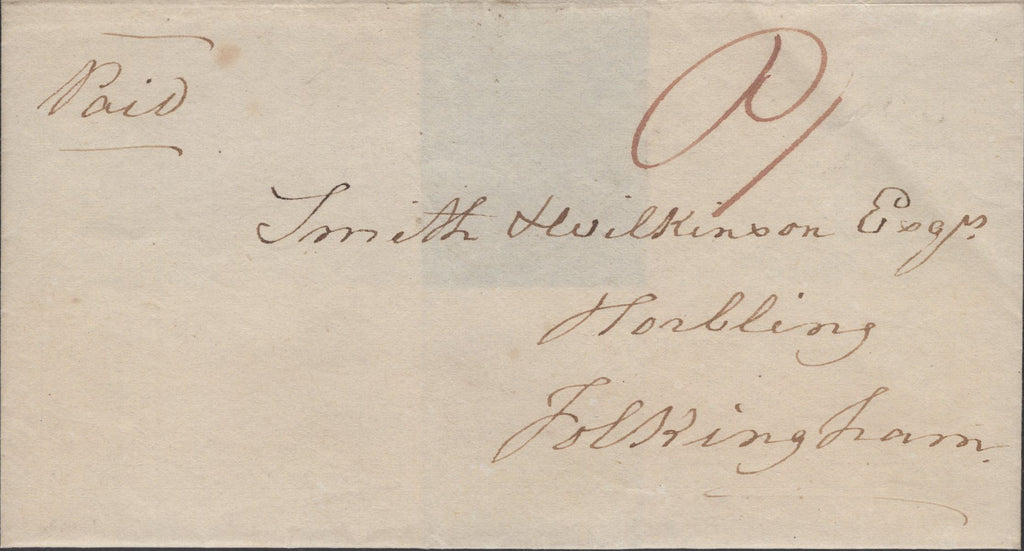 Paid
Smith & Wilkinson Esqrs.
Horbling
Folkingham.